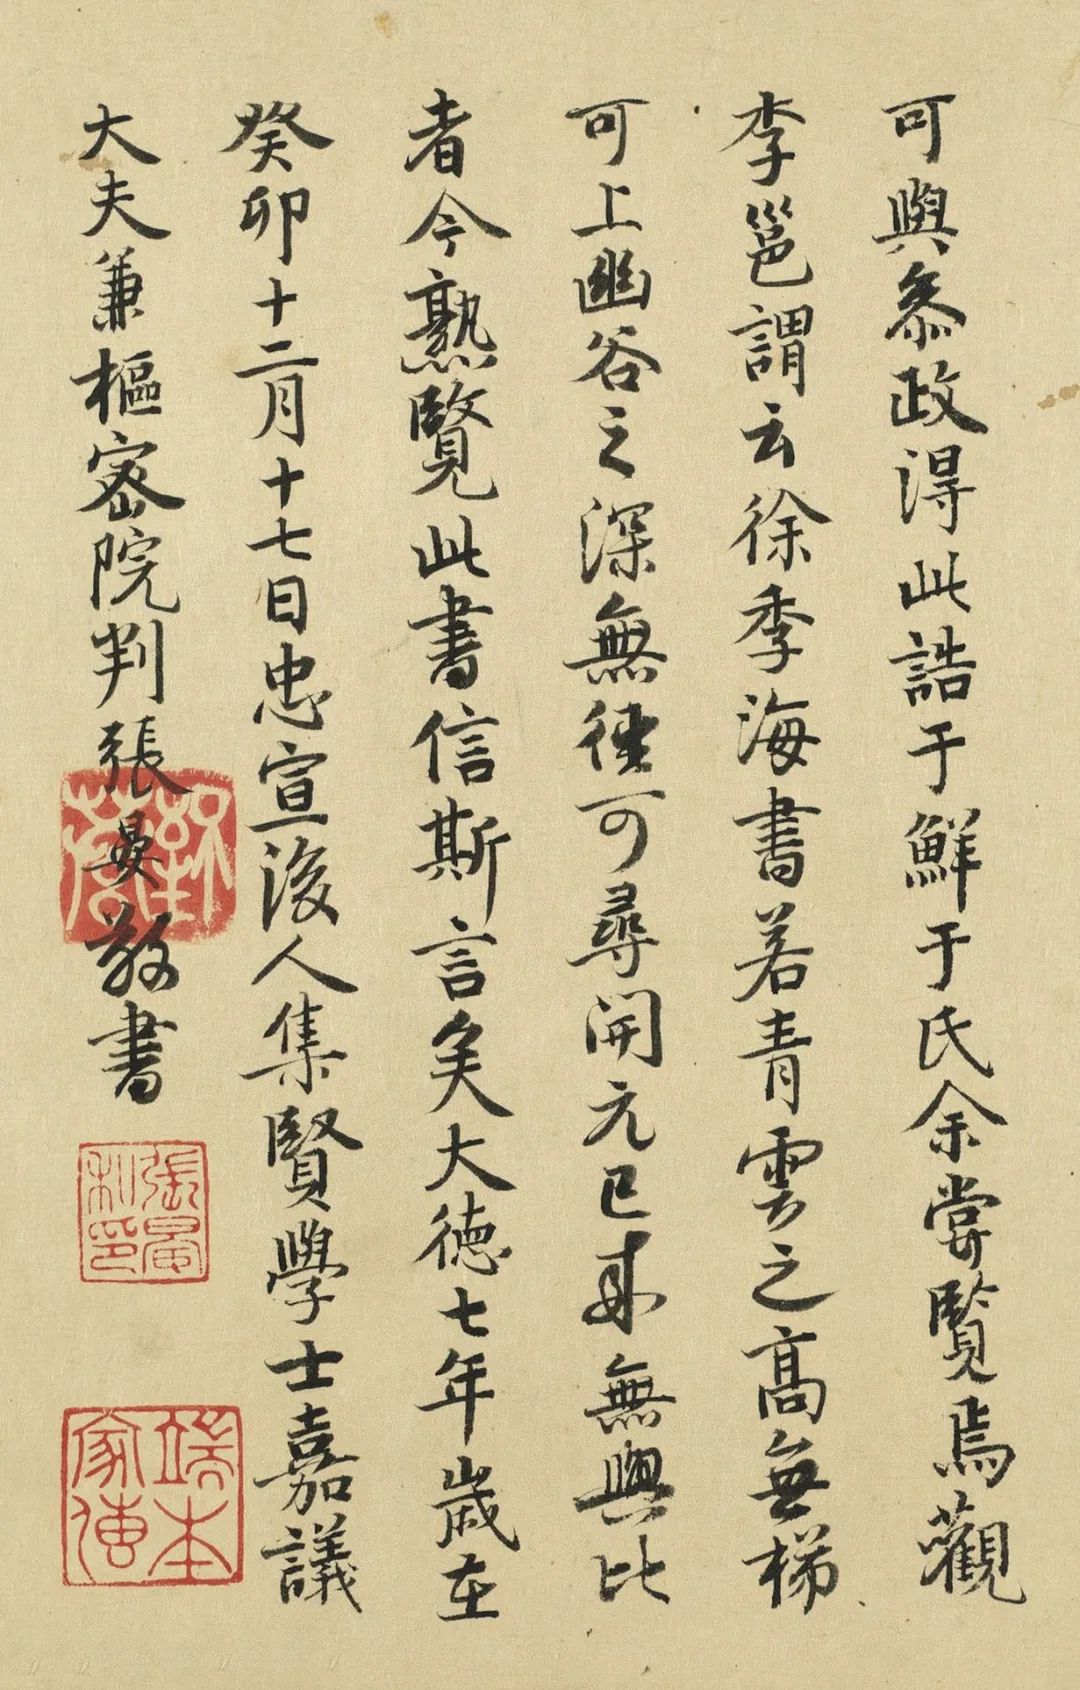 可與叅政得此誥于鮮于氏余嘗覽焉觀
李邕謂云徐季海書若青雲之高無梯
可上幽谷之深無徑可尋開元已來無與比
者今熟覽此書信斯言矣大德七年歲在
癸卯十二月十七日忠宣後人集賢學士嘉議
大夫兼樞密院判張晏敬書
張晏私印
端本家傳